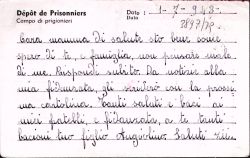 Dépôt de Prisonniers
Campo di prigionieri
Date : 1-7-943-
Data
Cara mamma Di salute sto bene come
spero di te e famiglia, non pensare male
di me. Rispondi subito. Da notizie alla
mia fidanzata, gli scriverò con la prossi
ma cartolina. Tanti saluti e baci ai
miei fratelli e fidanzata, a te tanti
bacioni tuo figlio Angiolino Saluti